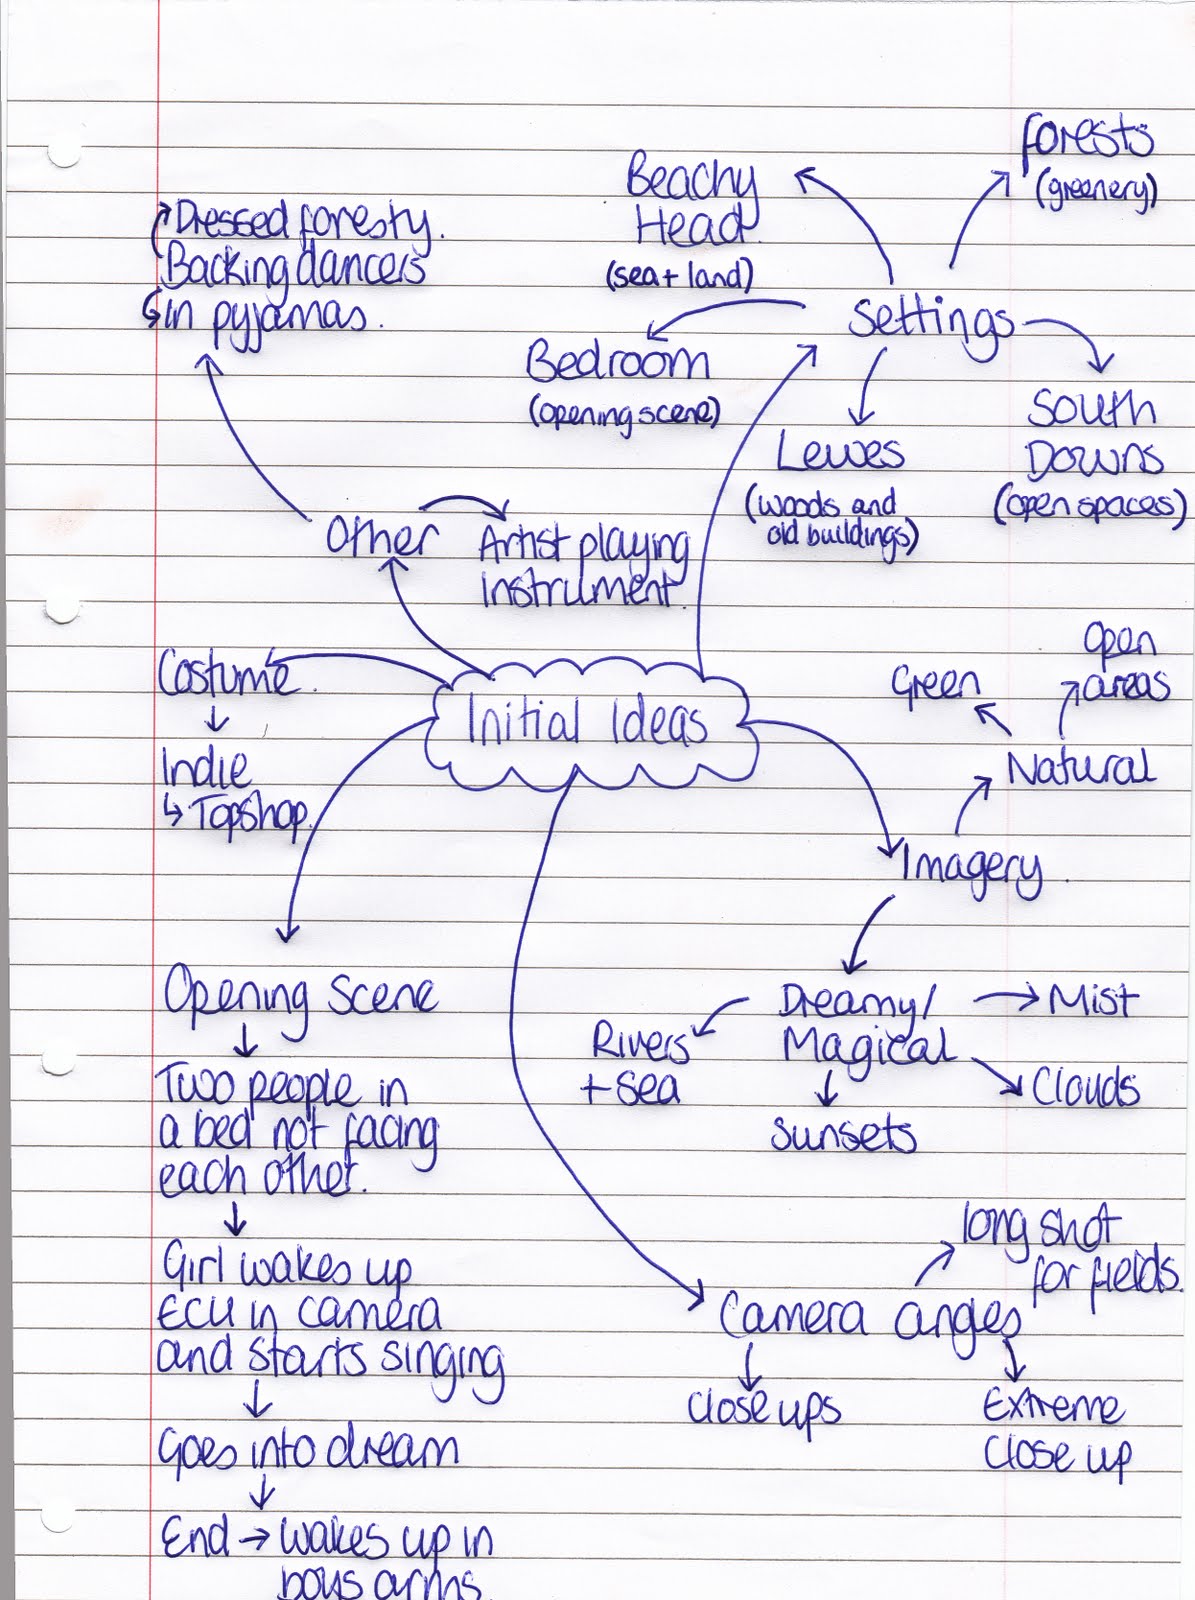 forests
(greenery)
Beachy
Head
(sea + land)
Dressed foresty.
Backing dancers
in pyjamas.
Settings
Bedroom
(opening scene)
South
Downs
(open spaces)
Lewes
(woods and
old buildings)
Other
Artist playing
instrument.
Costume.
Indie
Topshop.
Initial Ideas
Open
areas
Green
Natural
Imagery.
Opening Scene
Two people in
a bed not facing
each other.
Girl wakes up
ECU in camera
and starts singing
Goes into dream
End → wakes up in
boys arms.
Dreamy/
Magical
Mist
Clouds
Rivers
+ Sea
Sunsets
long shot
for fields.
Camera angles
Close ups
Extreme
Close up